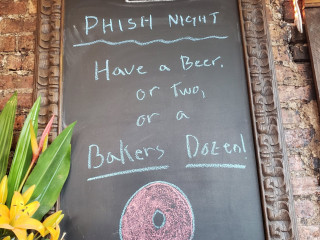 PHISH NIGHT
Have a Beer.
or Two,
or a
Bakers Dozen!